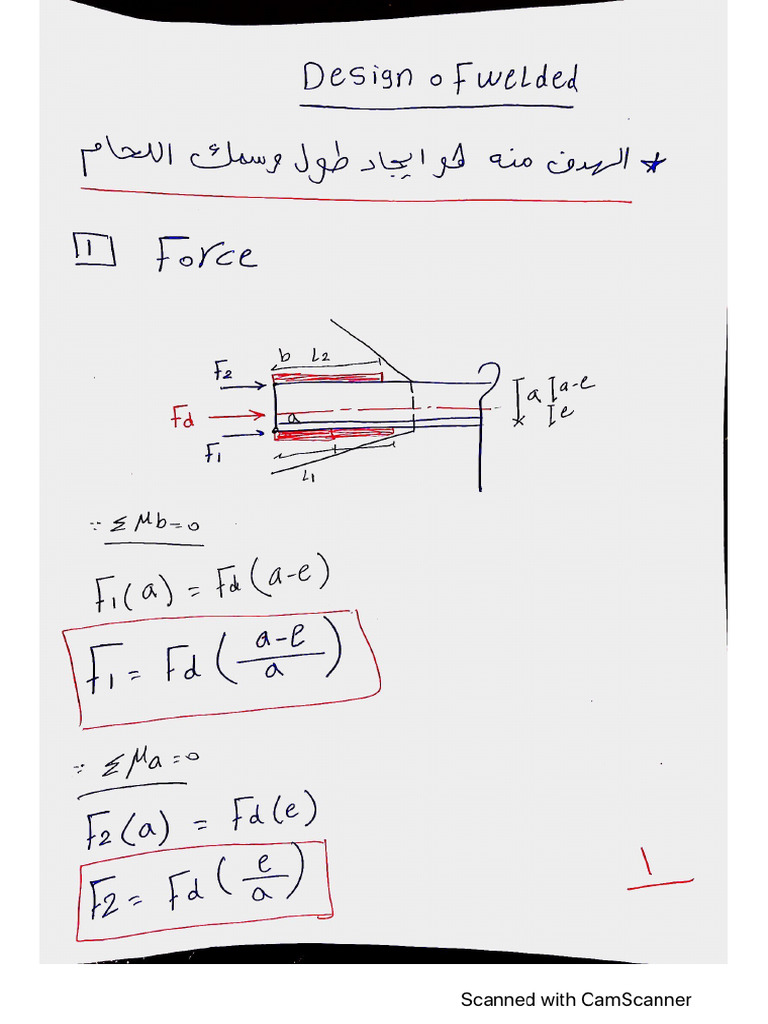 Design of welded
* الهدف منه هو ايجاد طول وسمك اللحام
1 Force
b L2
F2
Fd
a
F1
L1
a a-e
e
∵ Σ Mb=0
F1(a) = Fd(a-e)
F1= Fd(a-e/a)
∵ Σ Ma=0
F2(a) = Fd(e)
F2= Fd(e/a)
١
Scanned with CamScanner